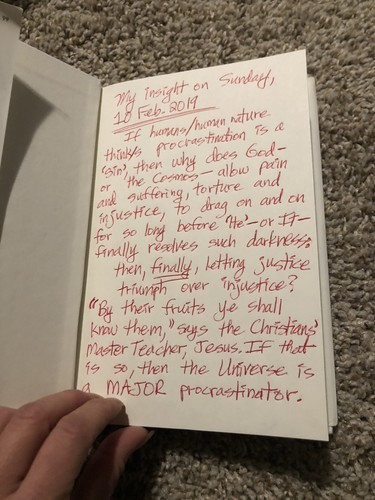 My insight on Sunday,
10 Feb. 2019
If humans/human nature
think/s procrastination is a
'sin', then why does God—
or the Cosmos—allow pain
and suffering, torture and
injustice, to drag on and on
for so long before 'He'—or It—
finally resolves such darkness;
then, finally, letting justice
triumph over injustice?
"By their fruits ye shall
know them," says the Christians'
Master Teacher, Jesus. If that
is so, then the Universe is
a MAJOR procrastinator.